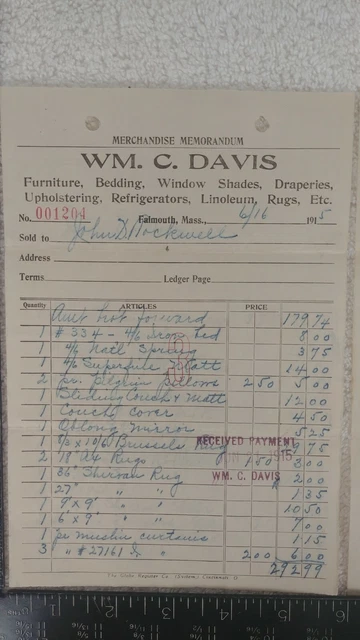 MERCHANDISE MEMORANDUM
WM. C. DAVIS
Furniture, Bedding, Window Shades, Draperies,
Upholstering, Refrigerators, Linoleum, Rugs, Etc.
No. 001204 Falmouth, Mass., 6/16 1915
Sold to John D Rockwell
Address
Terms Ledger Page
Quantity ARTICLES PRICE
Am't bot forward 179 74
1 # 334 - 4/6 Iron bed 8 00
1 4/6 Nat'l Spring 3 75
1 4/6 Superfine Matt 14 00
2 pr. Pilgrim Pillows 2 50 5 00
1 Sliding Couch & Matt 12 00
1 Couch Cover 4 50
1 Oblong Mirror 5 25
1 Brussels Rug 9 75
RECEIVED PAYMENT
2 Rugs 1 50 3 00
1915
1 36" Shirvan Rug 2 00
WM. C. DAVIS
1 27" " " 1 35
1 9' x 9' " " 10 50
1 6' x 9' " " 7 00
1 pr muslin curtains 1 15
3 " # 27161 " 2 00 6 00
292 99
1 2 3 4 5 6